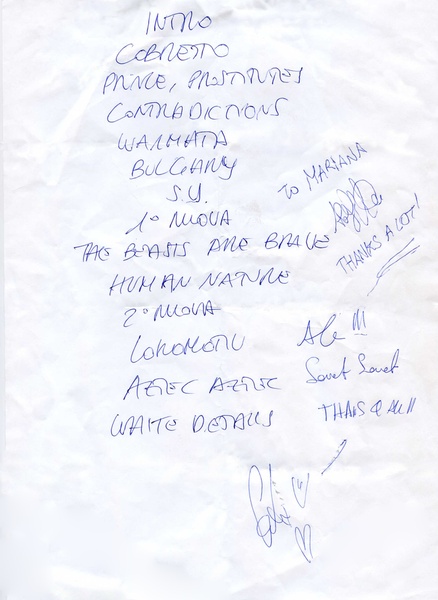 INTRO
COBRETTO
PRINCE, PROSTITUTES
CONTRADICTIONS
WARMATA
BULGARY
S.Y.
1° NUOVA
THE BEASTS ARE BRAVE
HUMAN NATURE
2° NUOVA
LOKOMOTIV
AZTEC AZTEC
WHITE DETAILS
TO MARIANA
THANKS A LOT!
Ale !!!
Soviet Soviet